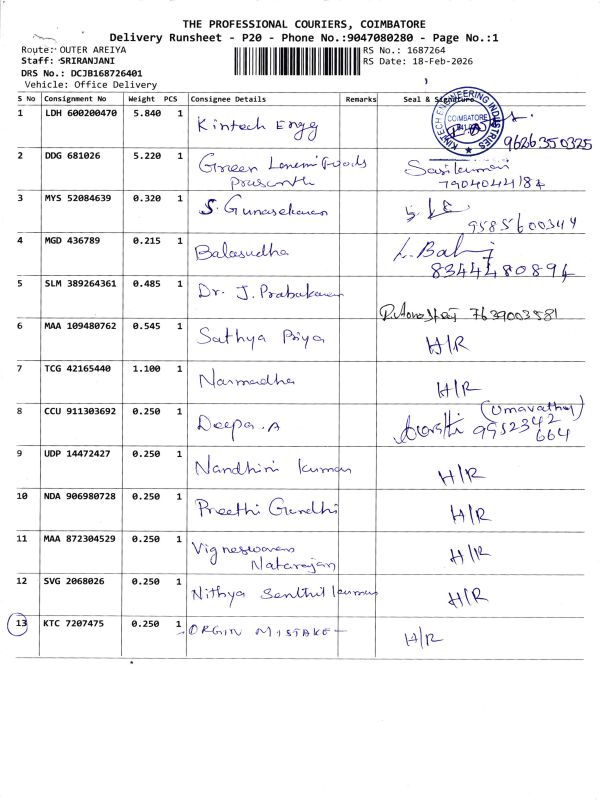 THE PROFESSIONAL COURIERS, COIMBATORE
Delivery Runsheet - P20 - Phone No.:9047080280 - Page No.:1
Route: OUTER AREIYA
RS No.: 1687264
Staff: SRIRANJANI
RS Date: 18-Feb-2026
DRS No.: DCJB168726401
Vehicle: Office Delivery
S No Consignment No Weight PCS Consignee Details Remarks Seal & Signature
1 LDH 600200470 5.840 1 Kintech Engg
KINTECH ENGINEERING INDUSTRIES
COIMBATORE
9626350325
2 DDG 681026 5.220 1 Green Foods
Prasanth
Sasikumar
7904044184
3 MYS 52084639 0.320 1 S. Gunasekaran
9585600344
4 MGD 436789 0.215 1 Balasudha
L. Balaji
8344480894
5 SLM 389264361 0.485 1 Dr. J. Prabakaran
7639003581
6 MAA 109480762 0.545 1 Sathya Priya H/R
7 TCG 42165440 1.100 1 Narmadha H/R
8 CCU 911303692 0.250 1 Deepa.A
(Umavathy)
9952342
664
9 UDP 14472427 0.250 1 Nandhini Kumar H/R
10 NDA 906980728 0.250 1 Preethi Gandhi H/R
11 MAA 872304529 0.250 1 Vigneswaran
Natarajan H/R
12 SVG 2068026 0.250 1 Nithya Senthil kumar H/R
13 KTC 7207475 0.250 1 - ORGIN MISTAKE - H/R